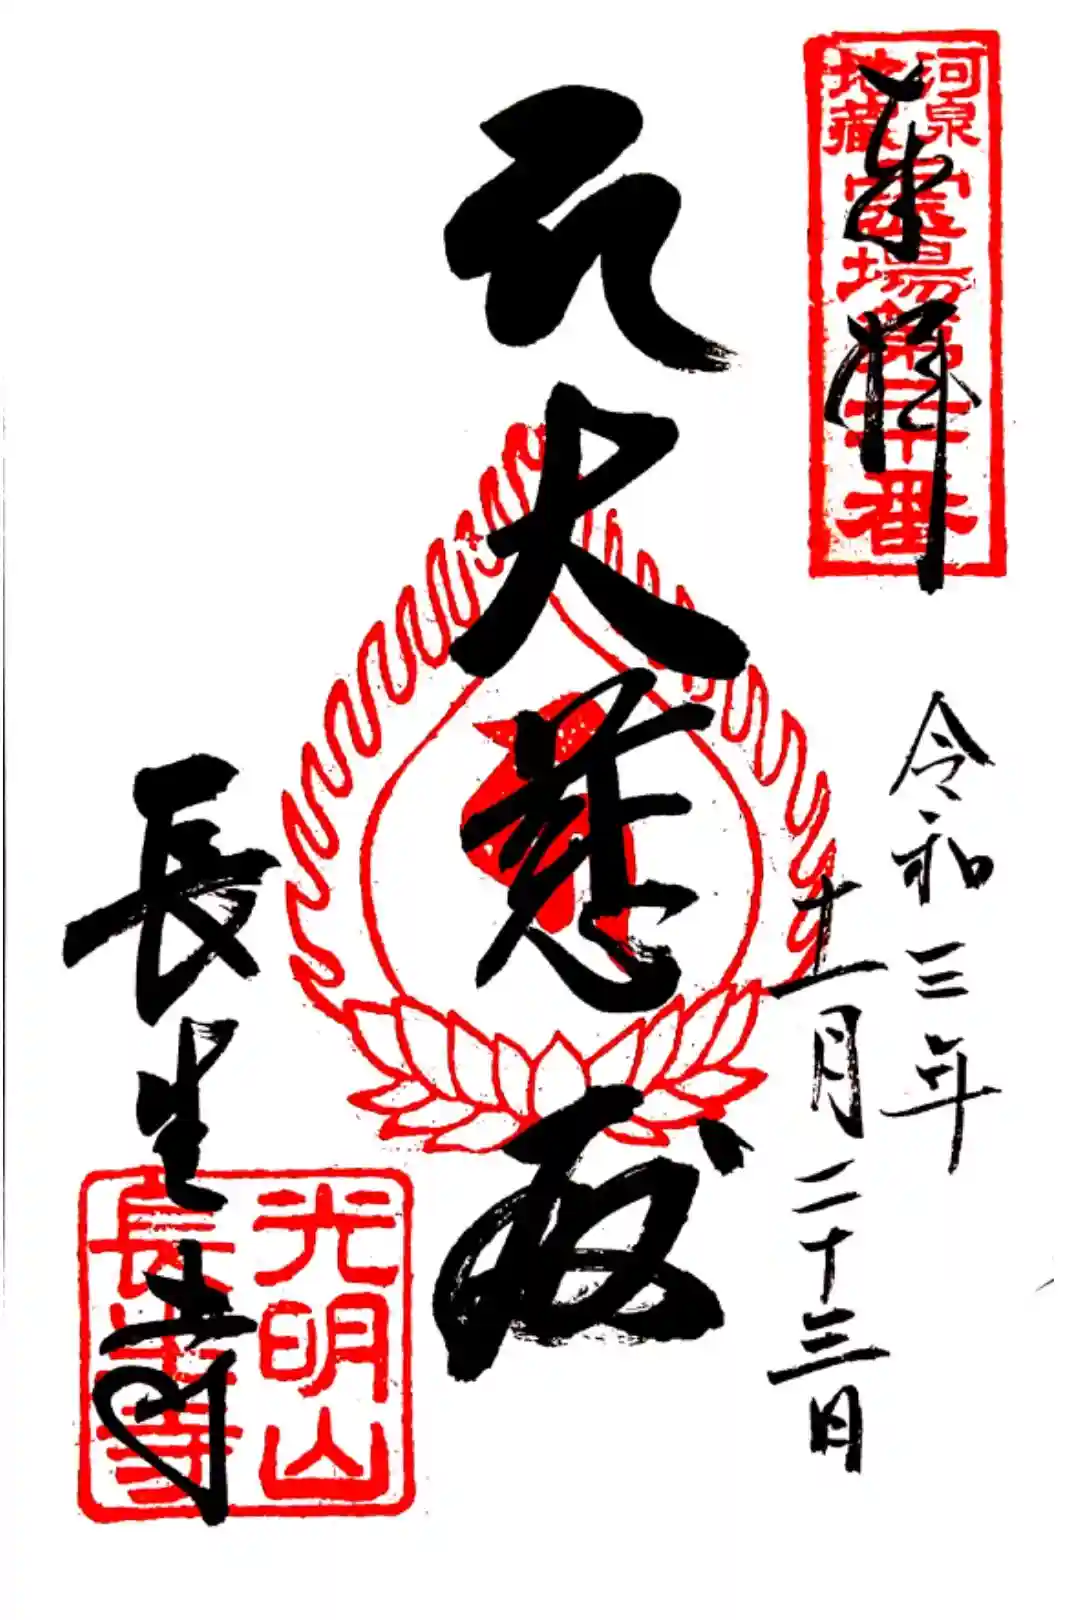 奉拝
河泉
地藏
靈場第十番
令和三年
十一月二十三日
大慈殿
長生寺
光明山
長生寺